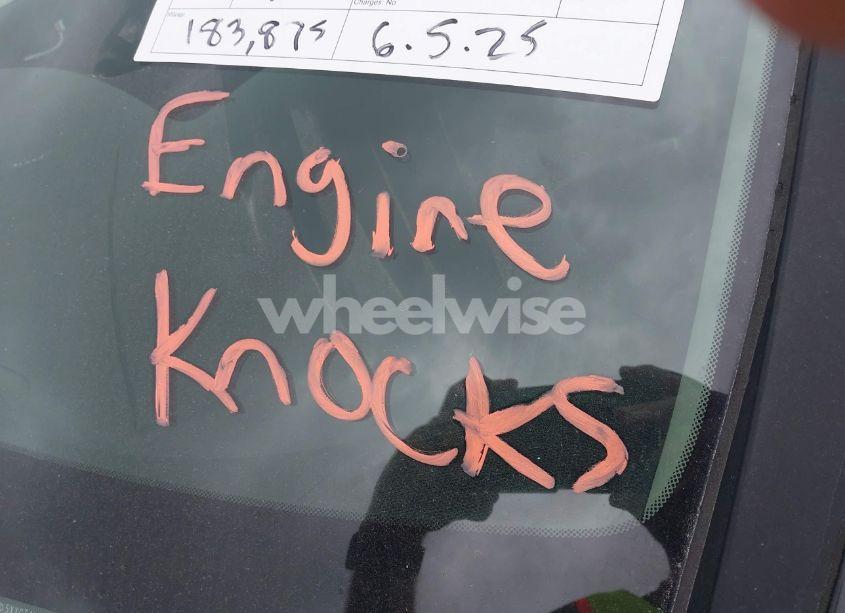 Charges No
183,875 6.5.25
Engine
wheelwise
Knocks